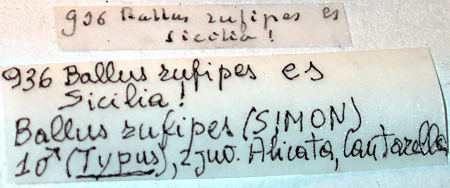 936 Ballus rufipes es
Sicilia!
936 Ballus rufipes es
Sicilia!
Ballus rufipes (SIMON)
1♂ (Typus), 2 juv. Alicata, Cantarella